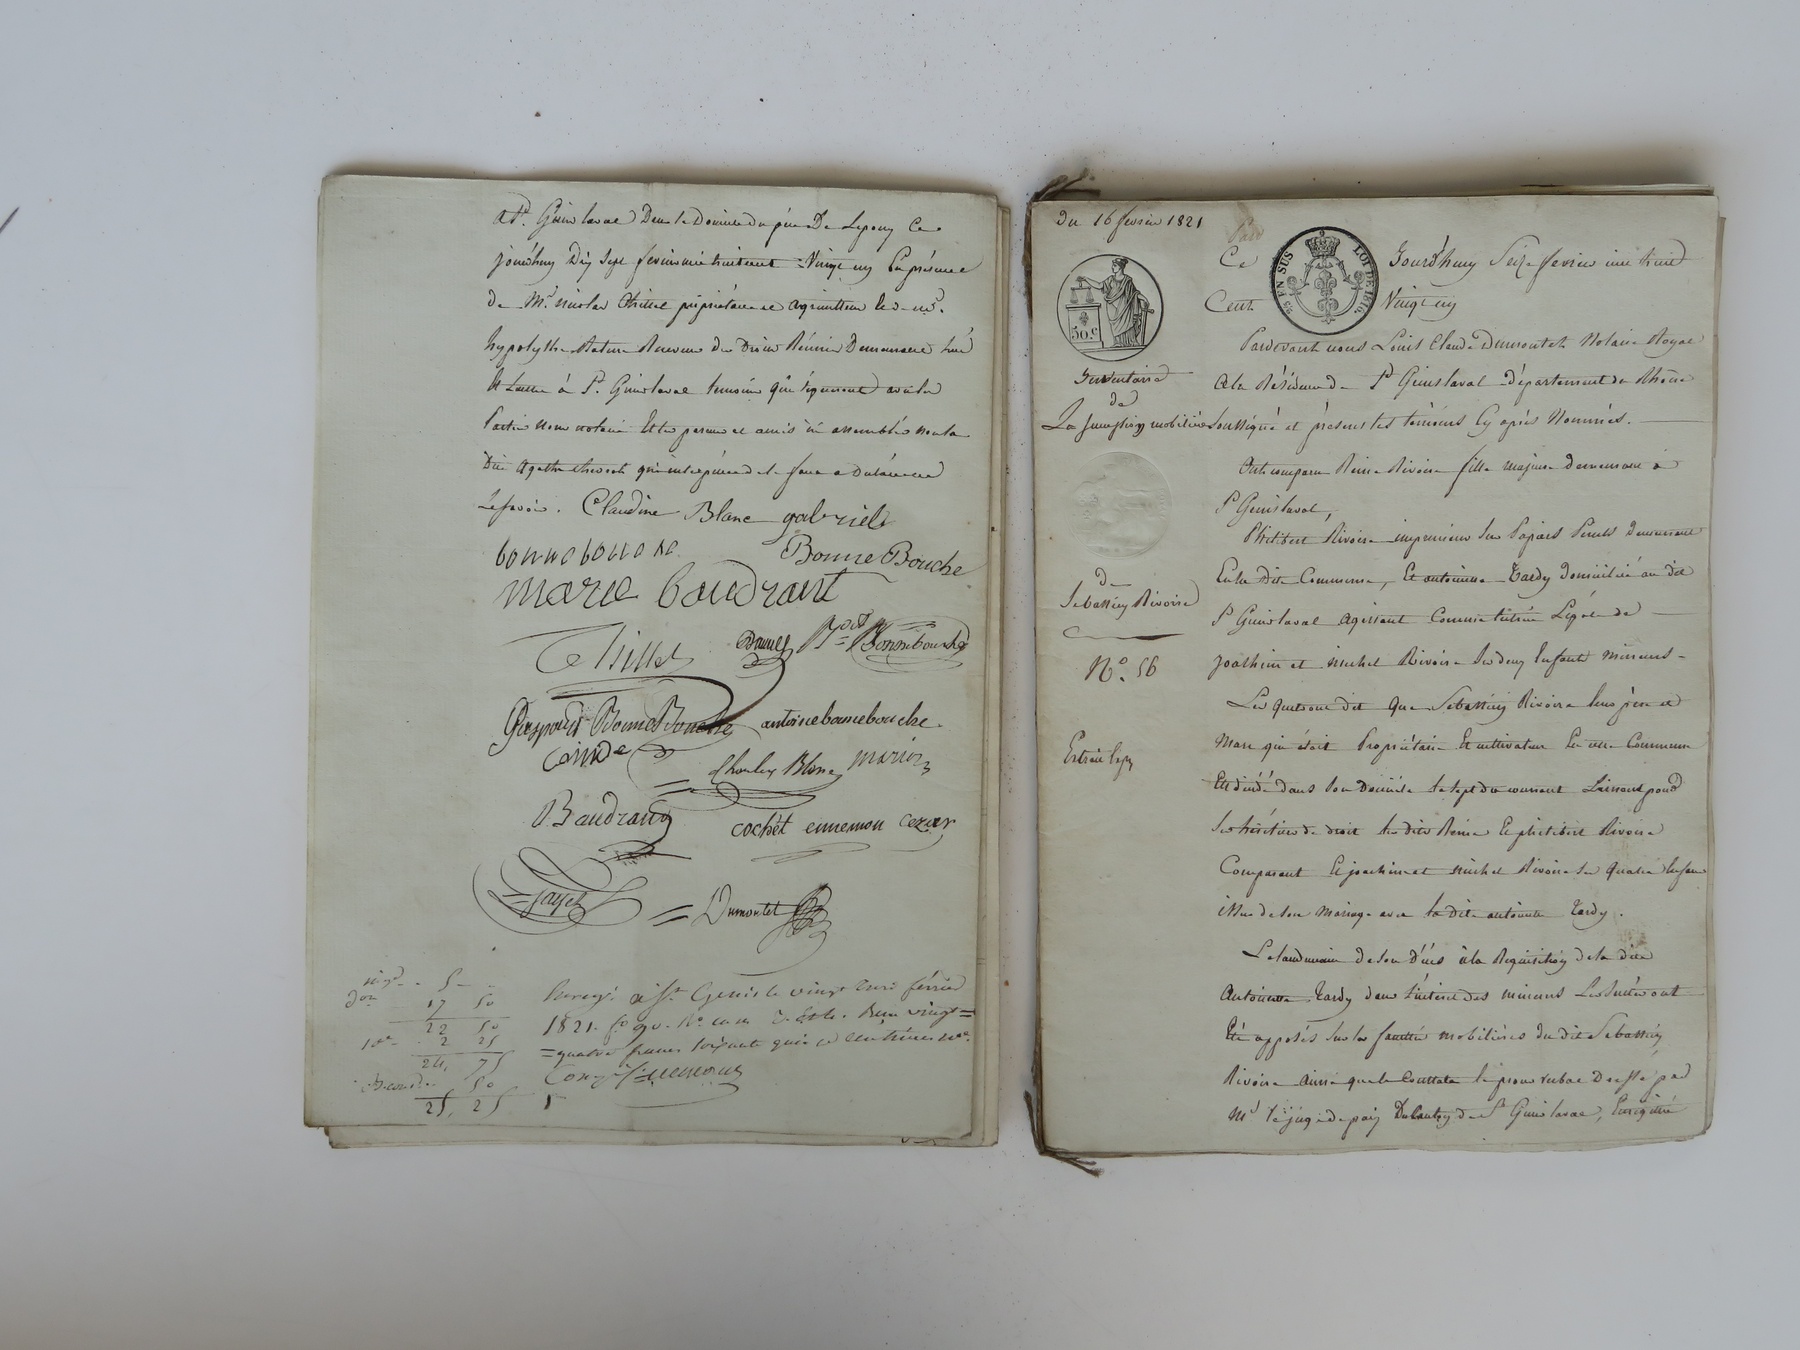 a St. Genis laval Dans le Domicile du père De Lepouy Ce
jourd'huy Dix Sept fevrier mil huit cent Vingt un En présence
de Mr. nicolas Thillet propriétaire et agriculteur le
hypolythe Receveur des Droits Réunis Demeurant
à St. Genis laval temoins qui signeront avec les
Parties nous notaire Et les parens et amis non la
Dite Agathe qui de ce faire a Déclaré ne
Le Savoir. Claudine Blanc gabriele
bonnebouche Bonne Bouche
marie baudrant
Thillet Bonnebouche
Gaspard Bonne Bouche antoine bonnebouche
Charles Blanc Marion
Baudrand cochet ennemon cezar
Dumontet
5
17 50
22 50
10e 2 25
24, 75
50
25, 25
Enregé. à St. Genis le vingt deux février
1821. fo 90. Reçu vingt=
=quatre francs soixante quinze centimes
Du 16 fevrier 1821
50c
25 EN SUS LOI DE 1816
Inventaire
de
La succession mobilière
de
Sebastien Rivoire
No. 56
Ce Jourd'huy Seize fevrier mil huit
Cent Vingt un
Pardevant nous Louis Claude Dumontet Notaire Royal
à la Résidence de St Genis laval département du Rhône
Soussigné et présens les témoins Cy après Nommés.
Ont comparu Reine Rivoire fille majeure demeurant à
St Genis laval,
Philibert Rivoire imprimeur sur Papiers Peints demeurant
En la dite Commune, Et antoinette Tardy domiciliée au dit
St Genis laval agissant Comme tutrice Légale de
Joachim et michel Rivoire ses deux Enfants mineurs
Lesquels ont dit que Sebastien Rivoire leur père et
Mari qui était Propriétaire Et cultivateur En cette Commune
Est décédé dans son domicile le sept du courant Laissant pour
Ses héritiers de droit les dits Reine Et philibert Rivoire
Comparant Et joachim et michel Rivoire ses quatre Enfans
issus de son Mariage avec la dite antoinette Tardy.
Le lendemain de son décès à la Requisition de la dite
Antoinette Tardy dans l'intérêt des mineurs Les Scellés ont
Eté apposés sur les facultés mobilières du dit Sebastien
Rivoire ainsi que le Constate le procès verbal Dressé par
Mr le juge de paix Du Canton de St Genis laval, Enregistré